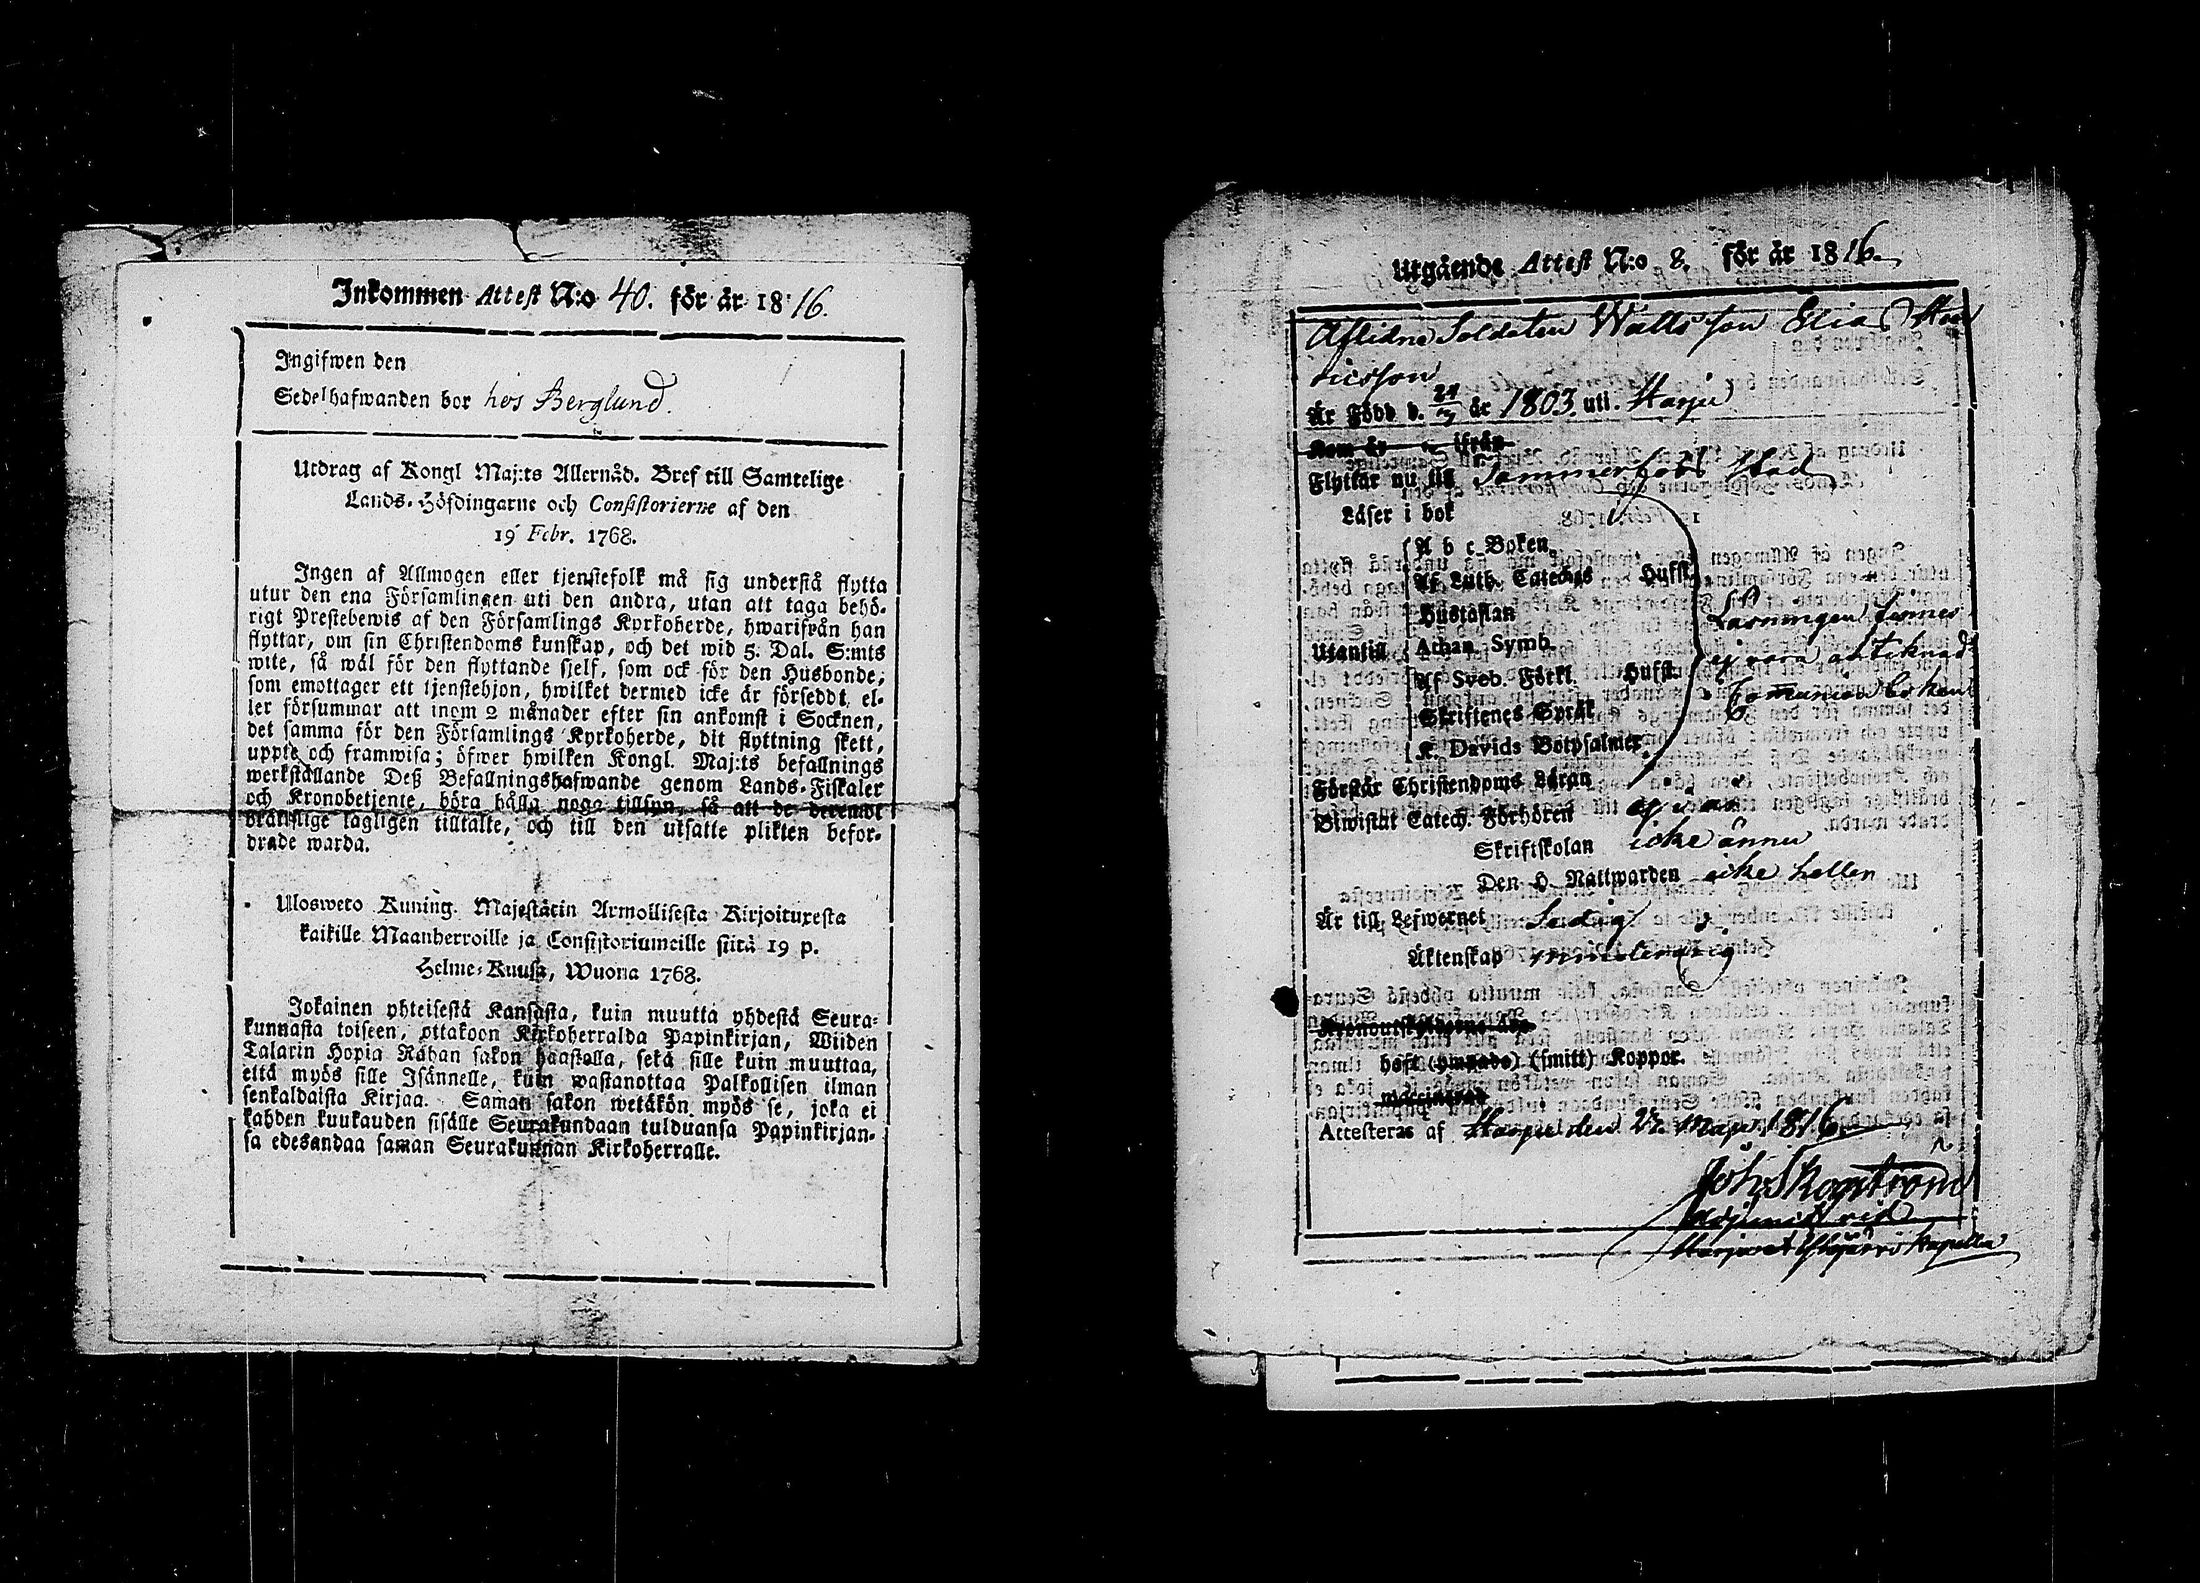 Inkommen Attest N:o 40. för år 1816.
Ingifwen den
Sedelhafwanden bor hos Berglund.
Utdrag af Kongl Maj:ts Allernåd. Bref till Samtelige
Lands-Höfdingarne och Consistorierne af den
19 Febr. 1768.
Ingen af Allmogen eller tjenstefolk må sig understå flytta
utur den ena Församlingen uti den andra, utan att taga behö-
rigt Prestebewis af den Församlings Kyrkoherde, hwarifrån han
flyttar, om sin Christendoms kunskap, och det wid 5. Dal. S:mts
wite, så wäl för den flyttande sjelf, som ock för den Husbonde,
som emottager ett tjenstehjon, hwilket dermed icke är försedt, el-
ler försummar att inom 2 månader efter sin ankomst i Socknen,
det samma för den Församlings Kyrkoherde, dit flyttning skett,
uppte och framwisa; öfwer hwilken Kongl. Maj:ts befallnings
werkställande Deß Befallningshafwande genom Lands-Fiskaler
och Kronobetjente, böra hålla noga tillsyn, så att de deremot
bråtslige lagligen tilltalte, och till den utsatte plikten befor-
drade warda.
Ulosweto Kuning. Majestätin Armollisesta Kirjoituxesta
kaikille Maanherroille ja Consistoriumeille siitä 19 p.
Helme-Kuusa, Wuona 1768.
Jokainen yhteisestä Kansasta, kuin muutta yhdestä Seura-
kunnasta toiseen, ottakoon Kirkoherralda Papinkirjan, Wiiden
Talarin Hopia Rahan sakon haastolla, sekä sille kuin muuttaa,
että myös sille Isännelle, kuin wastanottaa Palkollisen ilman
senkaldaista Kirjaa. Saman sakon wetäkön myös se, joka ei
kahden kuukauden sisälle Seurakundaan tulduansa Papinkirjan-
sa edesandaa saman Seurakunnan Kirkoherralle.
Utgående Attest N:o 8. för år 1816.
Aflidne Soldaten Walls son Elias Hen
ricsson
Är Född d. 24 år 1803. uti. Harju
Kom år ifrån
Flyttar nu till Tammerfors Stad
Läser i bok
A b c Boken
Af Luth. Cateches Hufst.
Hustaflan
Utantill Athan. Symb.
Af Sveb. Förkl. Hufst.
Skriftenes Språk
K. Davids Botpsalmer
Läsningen finnes
ej vara anteknad
i Communion boken
Förstår Christendoms Läran
Biwistat Catech. Förhören
Skriftskolan icke ännu
Den H. Nattwarden icke heller
Är till Lefwernet Sedig
Äktenskap minderårig
Kronoutskylderne
haft (ympade) (smitt) Koppor.
vaccinerad
Attesteras af Harju den 27. Maji 1816.
Joh. Skogström
Adjunct vid
Harju et Ylöjärvi Kapeller